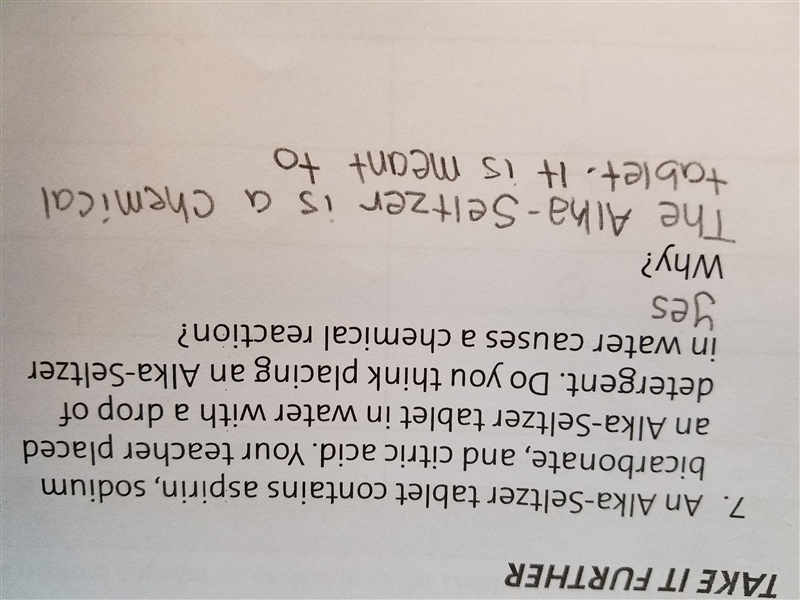 TAKE IT FURTHER
7. An Alka-Seltzer tablet contains aspirin, sodium
bicarbonate, and citric acid. Your teacher placed
an Alka-Seltzer tablet in water with a drop of
detergent. Do you think placing an Alka-Seltzer
in water causes a chemical reaction?
yes
Why?
The Alha-Seltzer is a chemical
tablet. It is meant to